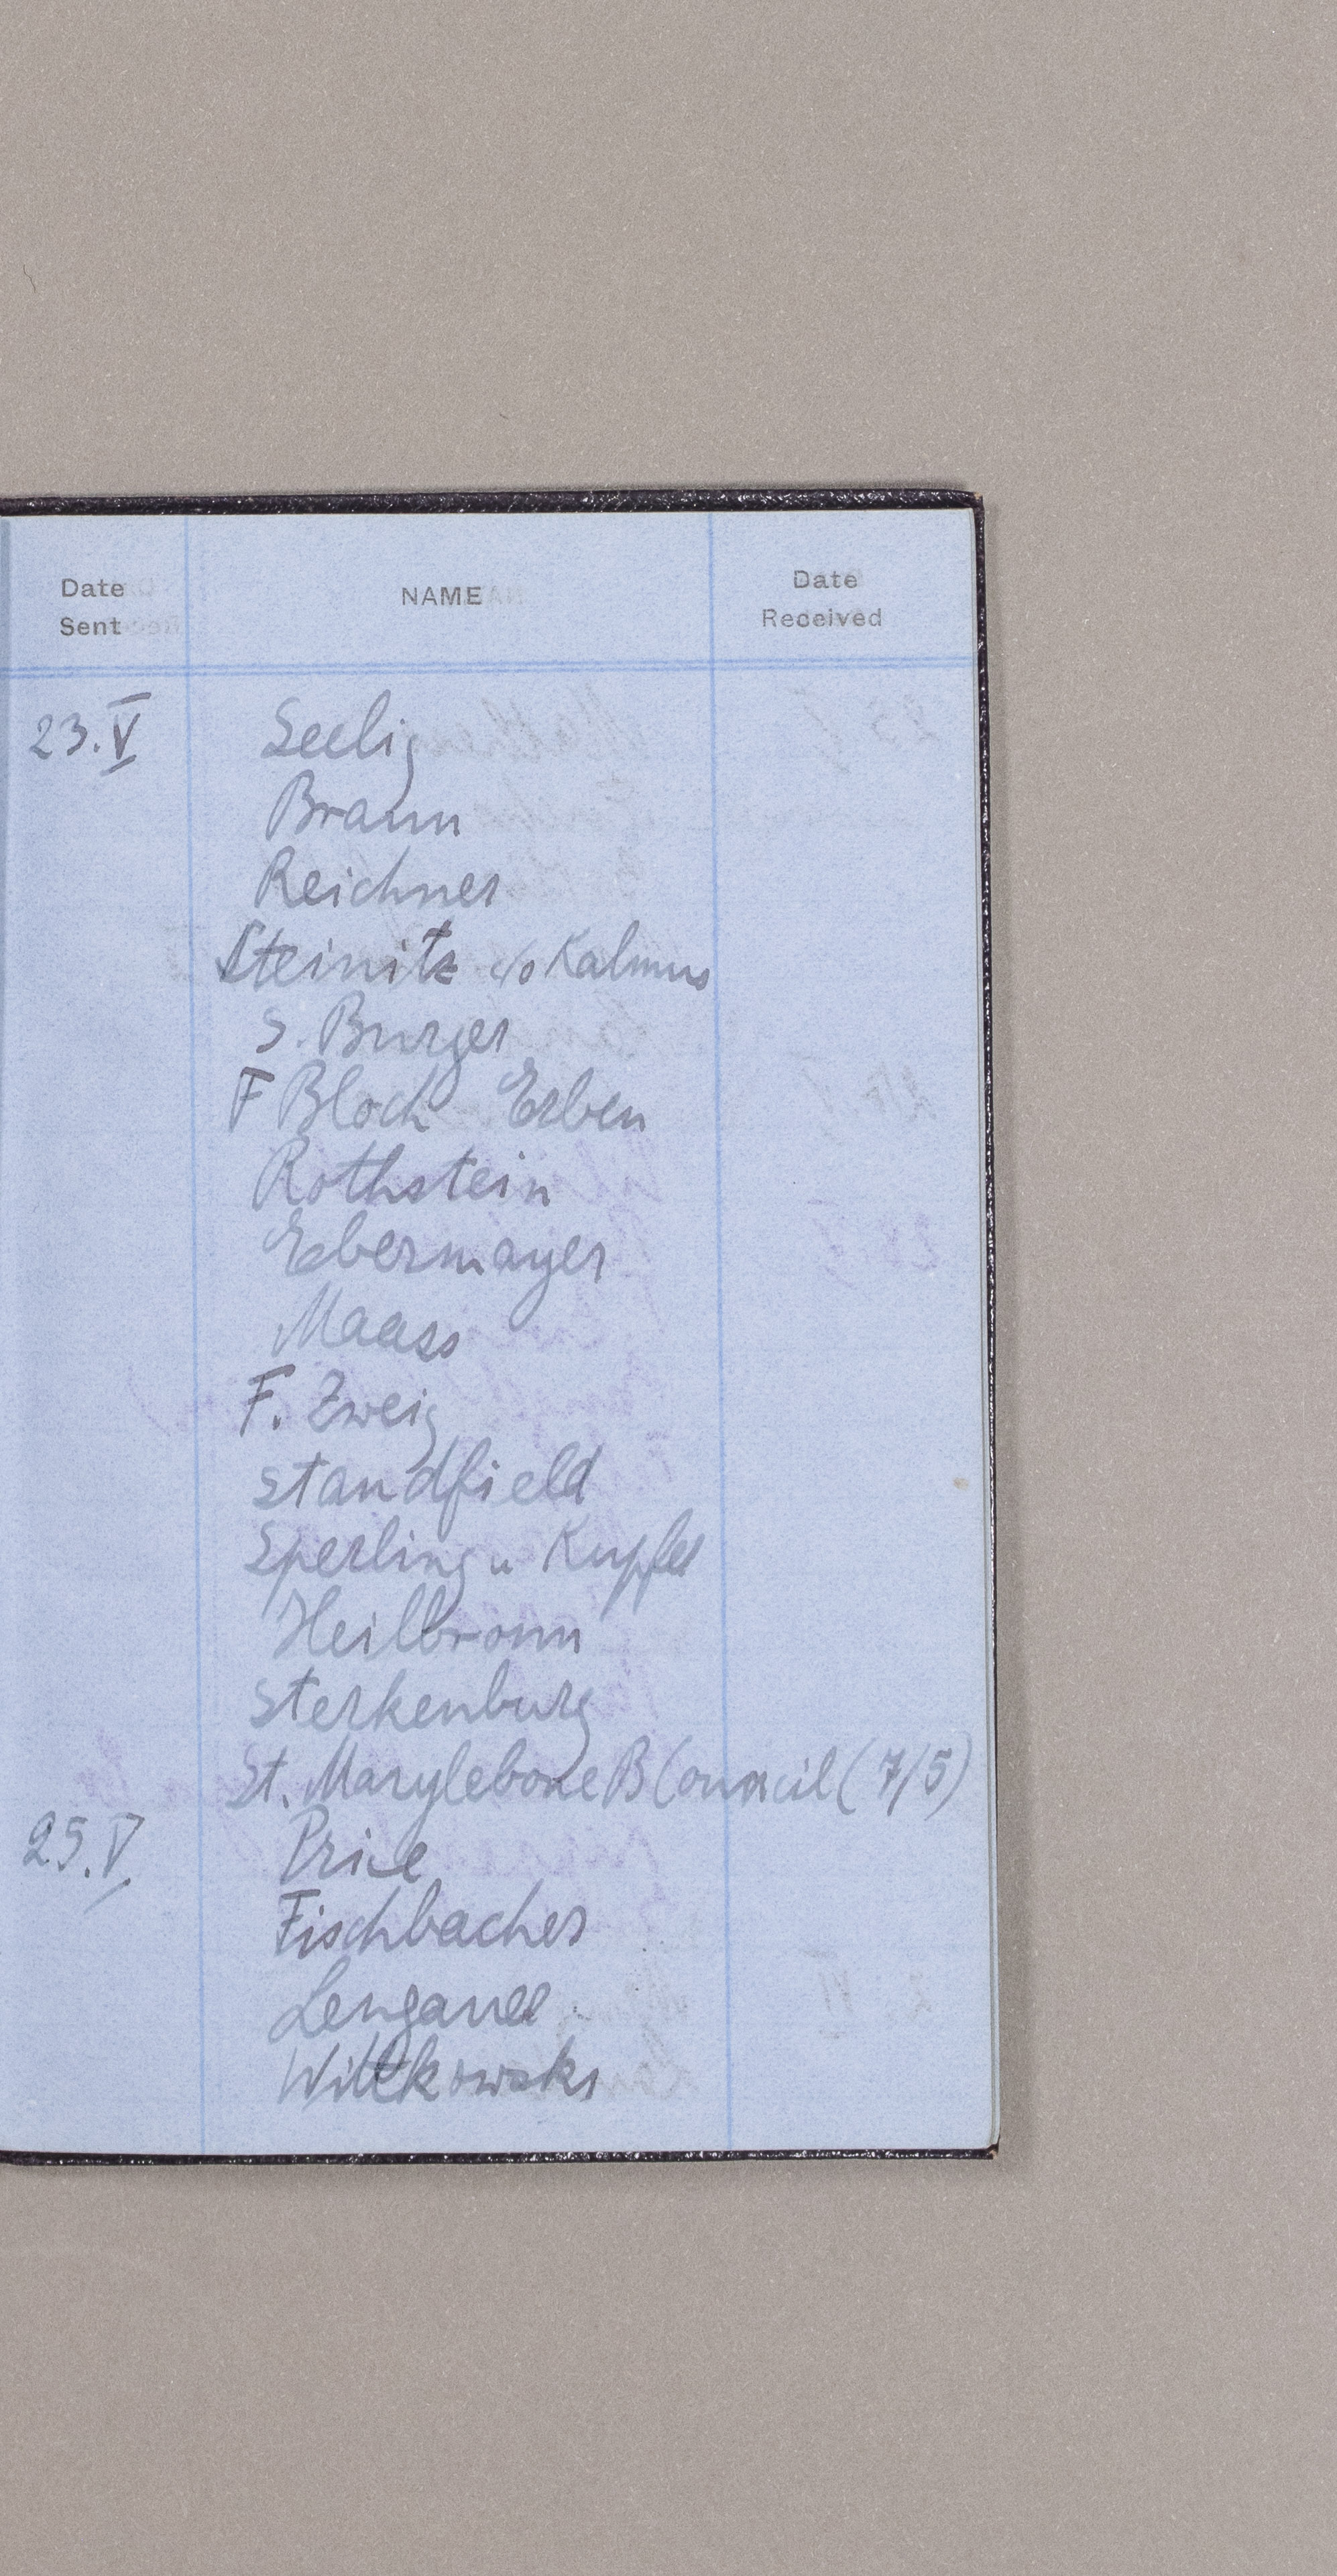 Date Sent NAME Date Received
23. V Seelig
Braun
Reichner
Steinitz c/o Kalmus
S. Burger
F Bloch Erben
Rothstein
Ebermayer
Maass
F. Zweig
Standfield
Sperling u Kupfer
Heilbronn
Sterkenburg
St. Marylebone B Council (7/5)
25. V Price
Fischbacher
Wittkowski